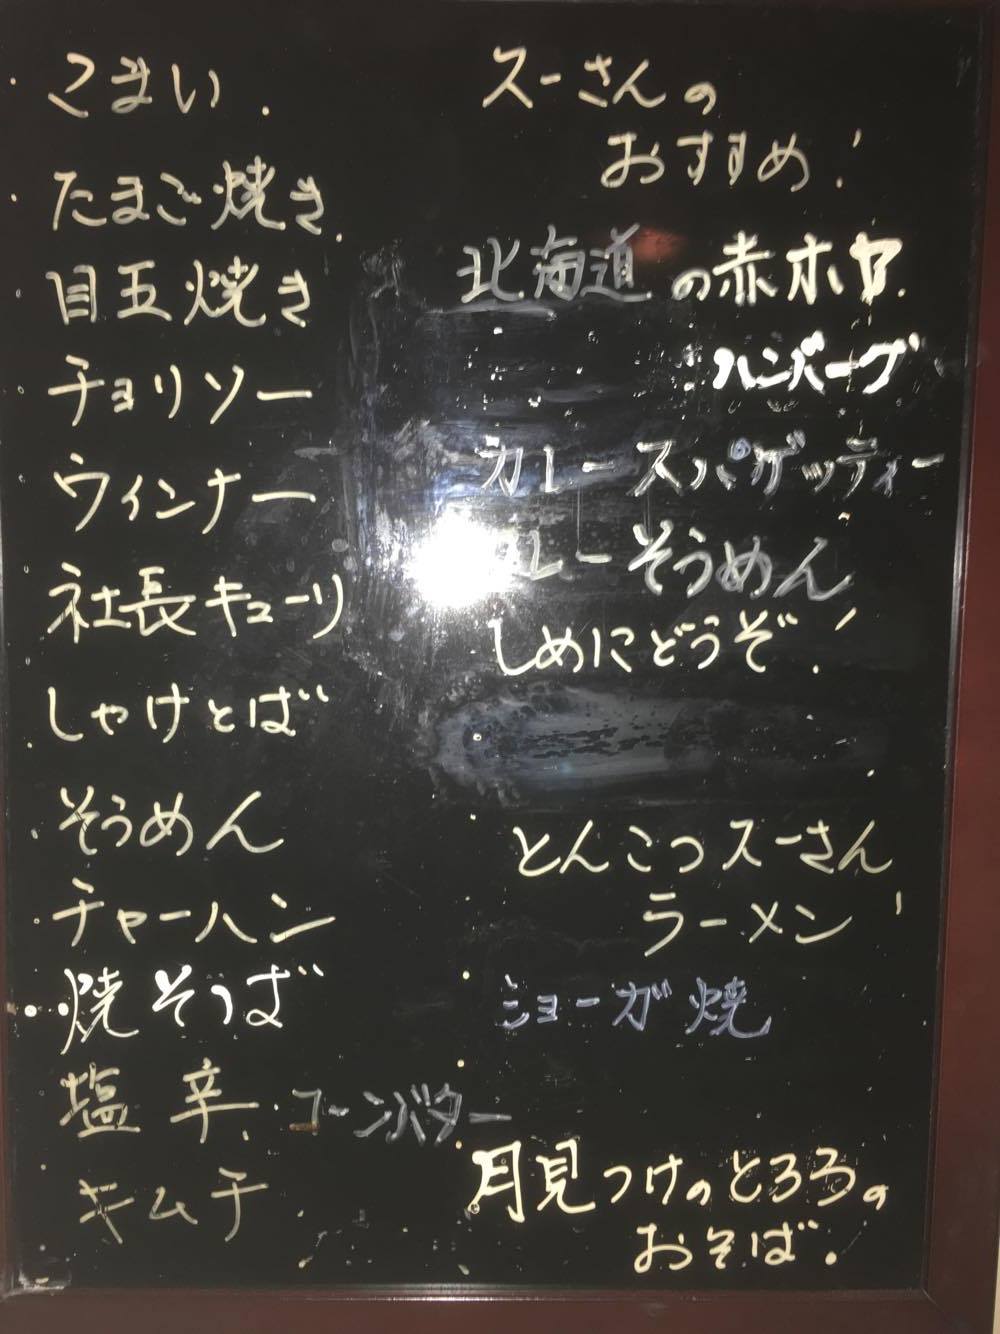 こまい.
たまご焼き
目玉焼き
チョリソー
ウィンナー
社長キューリ
しゃけとば
そうめん
チャーハン
焼そうば
塩辛. コーンバター
キムチ
スーさんの
おすすめ!
北海道の赤ホヤ.
ハンバーグ
カレースパゲッティー
レーそうめん
しめにどうぞ!
とんこつスーさん
ラーメン!
ショーガ焼
月見つけのとろろの
おそば.